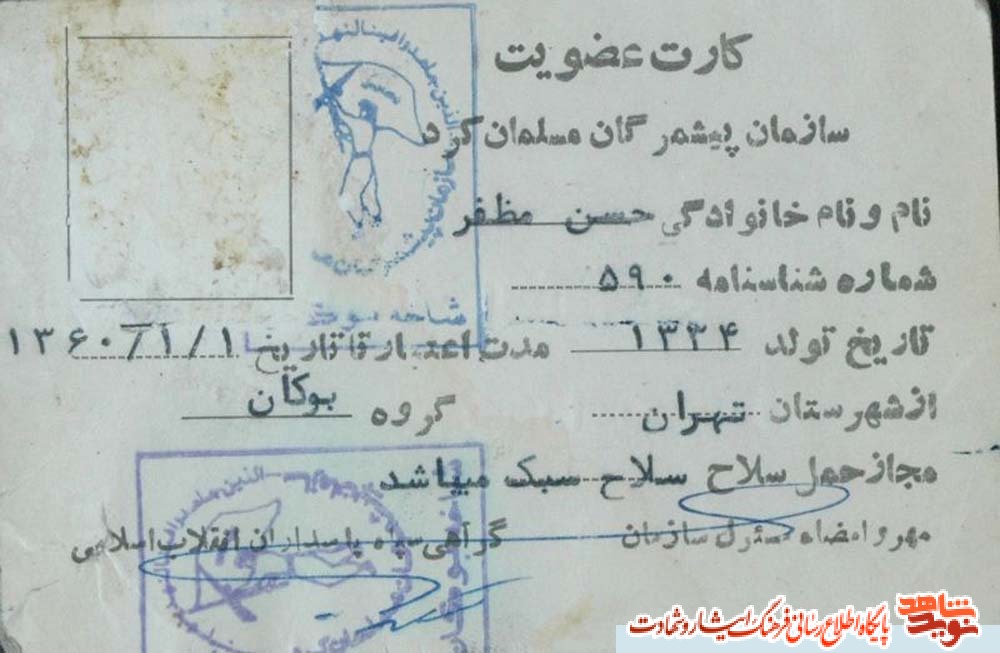 کارت عضویت
سازمان پیشمرگان مسلمان کرد
نام و نام خانوادگی حسن مظفر
شماره شناسنامه ۵۹۰
تاریخ تولد ۱۳۳۴ مدت اعتبار تا تاریخ ۱۳۶۰/۱/۱
از شهرستان تهران گروه بوکان
مجاز حمل سلاح سلاح سبک میباشد
مهر و امضاء مسئول سازمان گواهی سپاه پاسداران انقلاب اسلامی
شاخه بوکان
نوید شاهد
پایگاه اطلاع رسانی فرهنگ ایثار و شهادت